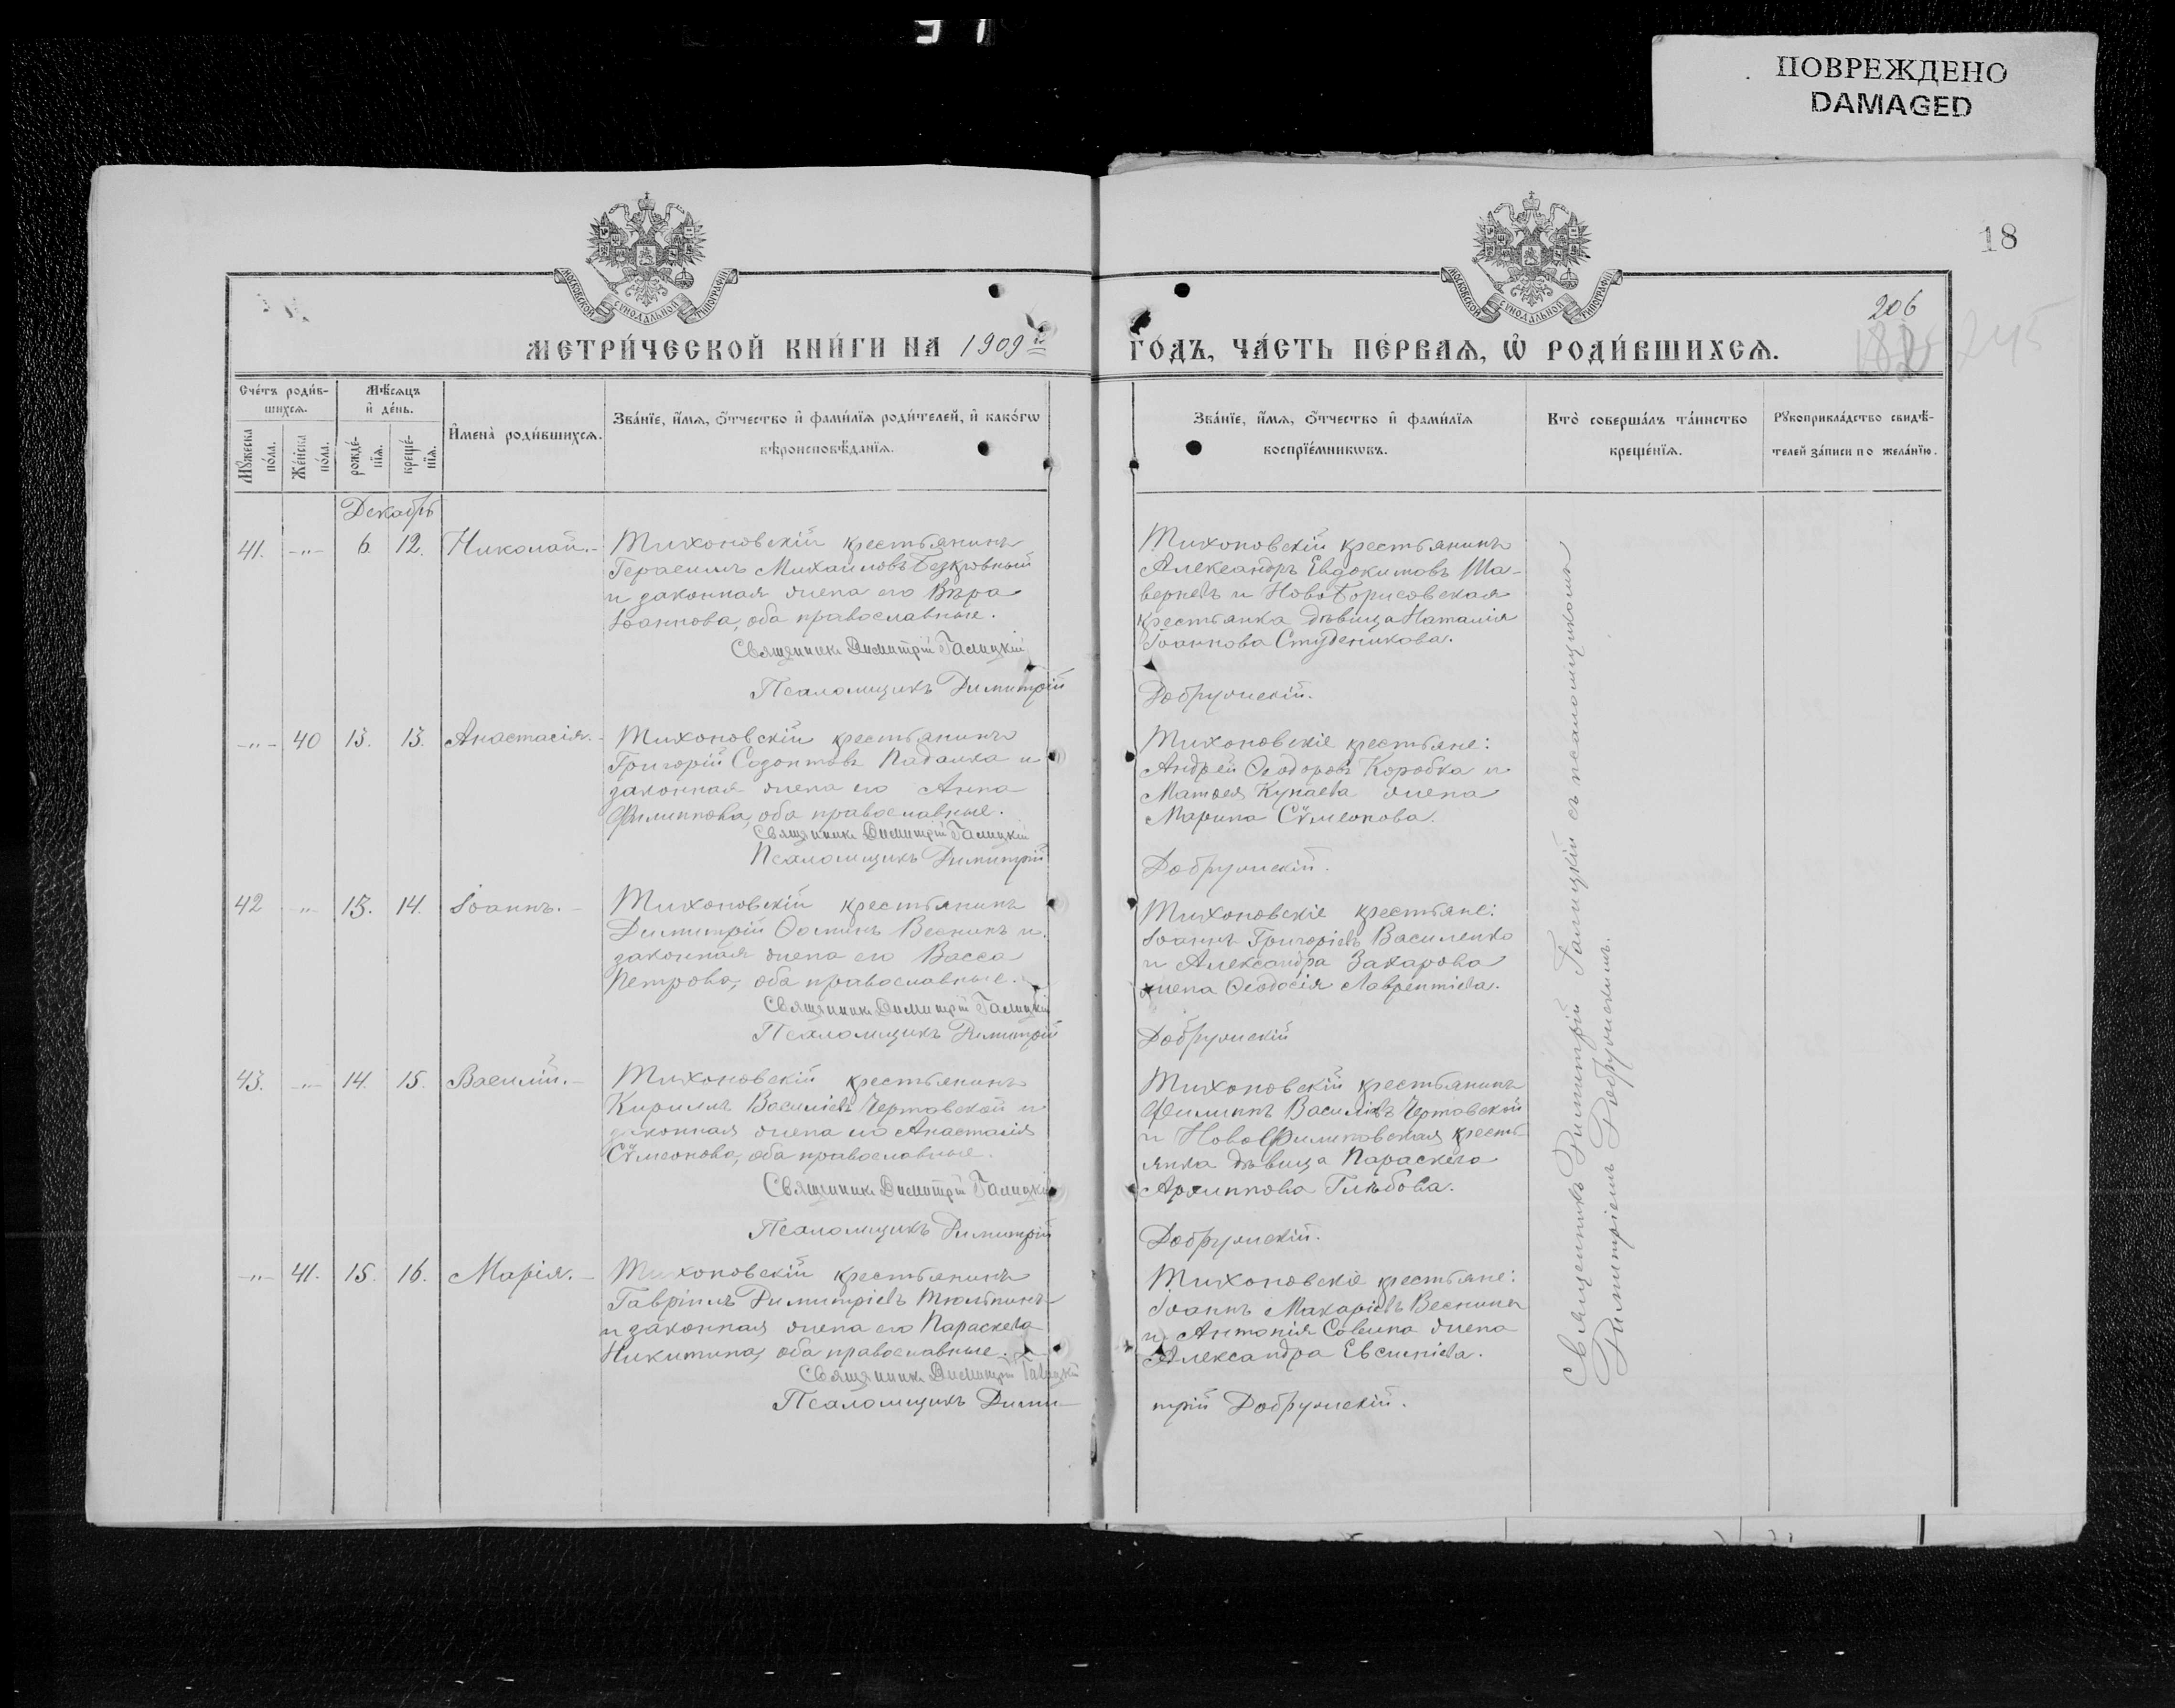 ПОВРЕЖДЕНО
DAMAGED
18
206
МОСКОВСКОЙ СѴНОДАЛЬНОЙ ТИПОГРАФІИ
МОСКОВСКОЙ СѴНОДАЛЬНОЙ ТИПОГРАФІИ
МЕТРИ́ЧЕСКОЙ КНИ́ГИ НА 1909й
ГО́ДЪ, ЧА́СТЬ ПЕ́РВАѦ, Ѡ҆ РОДИ́ВШИХСѦ.
Сче́тъ роди́в-
шихсѧ.
Мѣ́сѧцъ
и҆ де́нь.
Мꙋ́жеска
по́ла.
Же́нска
по́ла.
рожде́-
нїѧ.
креще́-
нїѧ.
И҆мена̀ роди́вшихсѧ.
Зва́нїе, и҆́мѧ, ѻ҆́тчество и҆ фами́лїѧ роди́телей, и҆ како́гѡ
вѣроисповѣ́данїѧ.
Зва́нїе, и҆́мѧ, ѻ҆́тчество и҆ фами́лїѧ
воспрїе́мникѡвъ.
Кто̀ соверша́лъ та́инство
креще́нїѧ.
Рꙋкоприкла́дство свидѣ́-
телей за́писи по жела́нїю.
Декабрь
41. -"- 6. 12. Николай.-
Тихоновскій крестьянинъ
Герасимъ Михаиловъ Безкровный
и законная жена его Вѣра
Іоаннова, оба православные.
Священникъ Димитрій Галицкій
Псаломщикъ Димитрій
Тихоновскій крестьянинъ
Александръ Евдокимовъ Ша-
верневъ и НовоБорисовская
крестьянка дѣвица Наталія
Іоаннова Студеникова.
Добружскій.
-"- 40 13. 13. Анастасія.-
Тихоновскій крестьянинъ
Григорій Созонтовъ Падалка и
законная жена его Анна
Филиппова, оба православные.
Священникъ Димитрій Галицкій
Псаломщикъ Димитрій
Тихоновскіе крестьяне:
Андрей Ѳеодоровъ Коробка и
Матѳея Кунаева жена
Марина Сѵмеонова.
Добружскій.
42 -"- 13. 14. Іоаннъ.-
Тихоновскій крестьянинъ
Димитрій Ѳоминъ Веснинъ и
законная жена его Васса
Петрова, оба православные.
Священникъ Димитрій Галицкій
Псаломщикъ Димитрій
Тихоновскіе крестьяне:
Іоаннъ Григоріевъ Василенко
и Александра Захарова
жена Ѳеодосія Лаврентіева.
Добружскій
43. -"- 14. 15. Василій.-
Тихоновскій крестьянинъ
Кириллъ Василіевъ Чертовской и
законная жена его Анастасія
Сѵмеонова, оба православные.
Священникъ Димитрій Галицкій
Псаломщикъ Димитрій
Тихоновскій крестьянинъ
Филиппъ Василіевъ Чертовской
и НовоФилиповская кресть-
янка дѣвица Параскева
Архиппова Глѣбова.
Добружскій.
-"- 41. 15. 16. Марія.-
Тихоновскій крестьянинъ
Гавріилъ Димитріевъ Тюльпинъ
и законная жена его Параскева
Никитина, оба православные.
Священникъ Димитрій Галицкій
Псаломщикъ Дими-
Тихоновскіе крестьяне:
Іоаннъ Макаріевъ Веснинъ
и Антонія Савина жена
Александра Евсигніева.
трій Добружскій.
Священникъ Димитрій Галицкій съ псаломщикомъ
Димитріемъ Добружскимъ.